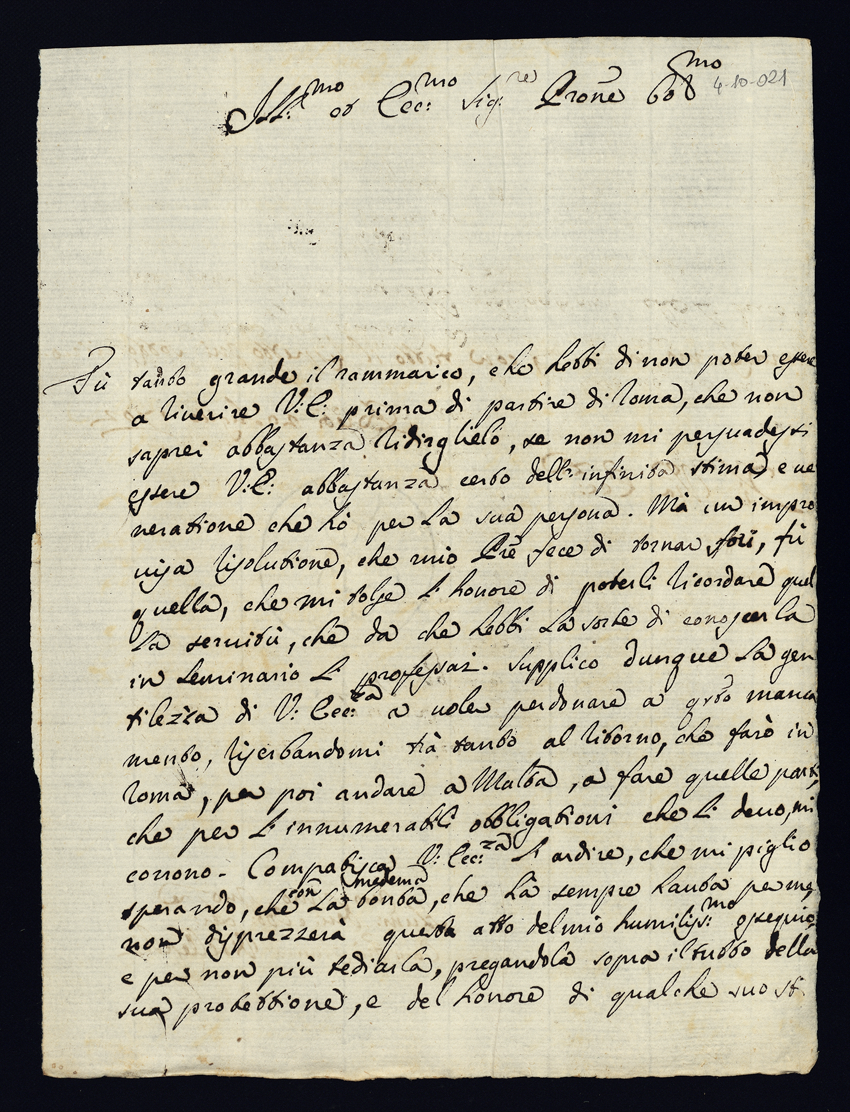 Ill:mo et Ecc:mo Sig:re Prone Col:mo
4-10-021
Fù tanto grande il rammarico, che hebbi di non poter essere
a riverire V:E: prima di partire di roma, che non
saprei abbastanza ridirglielo, se non mi persuadessi
essere V:E: abbastanza certo dell'infinita stima, e ve
neratione che hò per la sua persona. Mà un impro
visa risolutione, che mio Prē fece di tornar , fù
quella, che mi tolse l'honore di poterli ricordare quel
la servitù, che da che hebbi la sorte di conoscerla
in seminario li professai. Supplico dunque la gen
tilezza di V: Ecc:za a voler perdonare a qsto manca
mento, riserbandomi trà tanto al ritorno, che farò in
roma, per poi andare a Malta, a fare quelle parti,
che per l'innumerabili obbligationi che li devo, mi
corrono. Compatisca V: Ecc:za l'ardire, che mi piglio
sperando, che con la medema bontà, che hà sempre hauta per me,
non disprezzerà questo atto del mio humiliss:mo ossequio,
e per non più tediarla, pregandola sopra il tutto della
sua protettione, e del honore di qualche suo